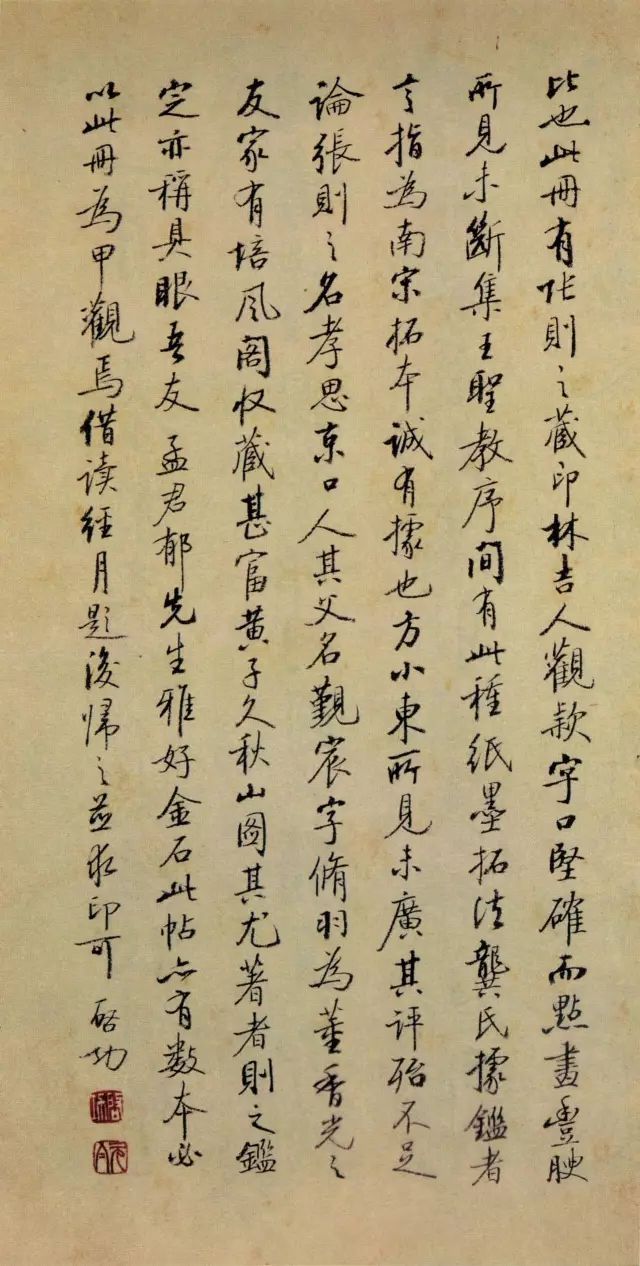 比也此冊有張則之藏印林吉人觀款字口堅確而點畫豐腴
所見未斷集王聖教序間有此種紙墨拓法龔氏據鑑者
言指為南宋拓本誠有據也方小東所見未廣其評殆不足
論張則之名孝思京口人其父名覲宸字脩羽為董香光之
友家有培風閣收藏甚富黃子久秋山圖其尤著者則之鑑
定亦稱具眼吾友孟君郁先生雅好金石此帖亦有数本必
以此冊為甲觀焉借读經月題後帰之並求印可 啓功